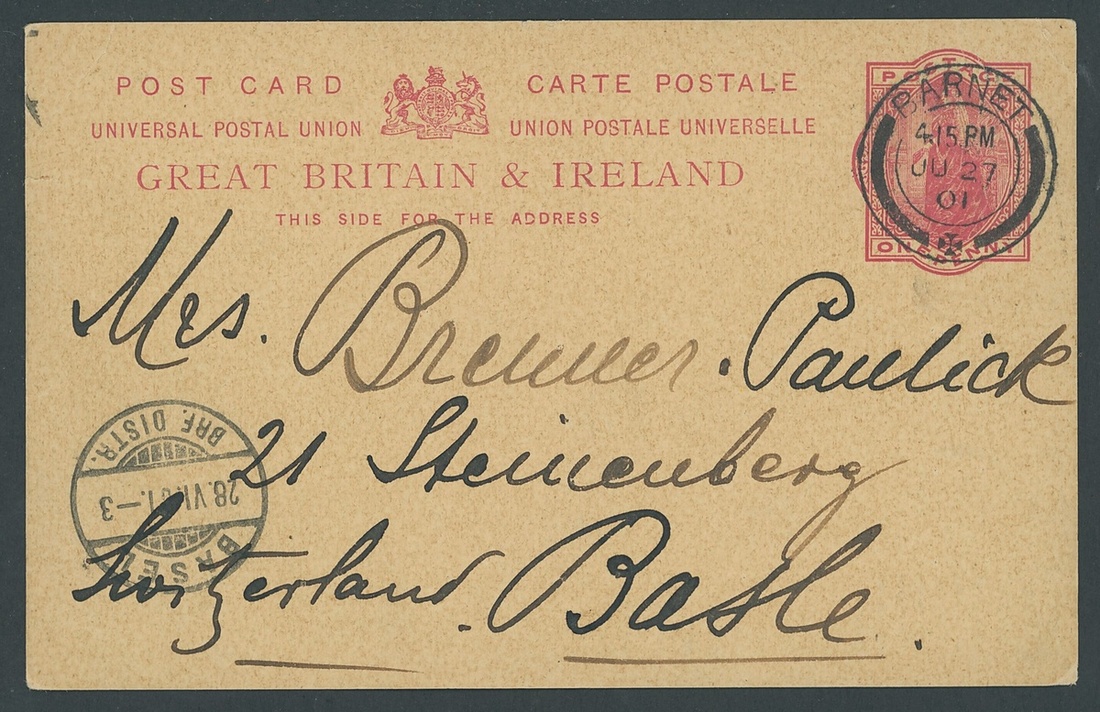 POST CARD CARTE POSTALE
UNIVERSAL POSTAL UNION UNION POSTALE UNIVERSELLE
GREAT BRITAIN & IRELAND
THIS SIDE FOR THE ADDRESS
POSTAGE
ONE PENNY
BARNET
4.15.PM
JU 27
01
Mrs. Brenner. Paulick
21 Steinenberg
Switzerland. Basle.
BRF. DISTR.
28.VI.01.–3
BASEL